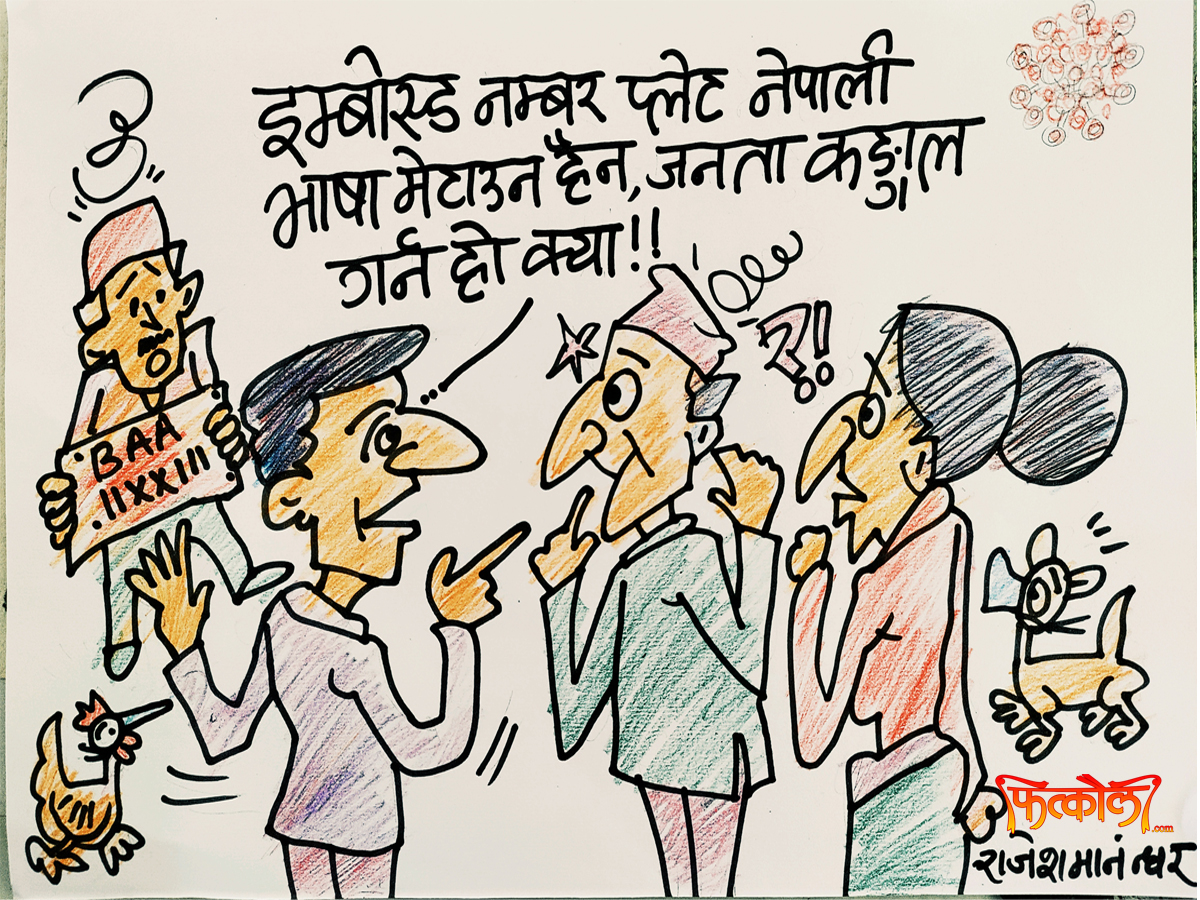 इम्बोस्ड नम्बर प्लेट नेपाली
भाषा मेटाउन हैन, जनता कङ्गाल
गर्न हो क्या!!
BAA
11XX111
फत्कौला
.com
राजेश मानन्धर